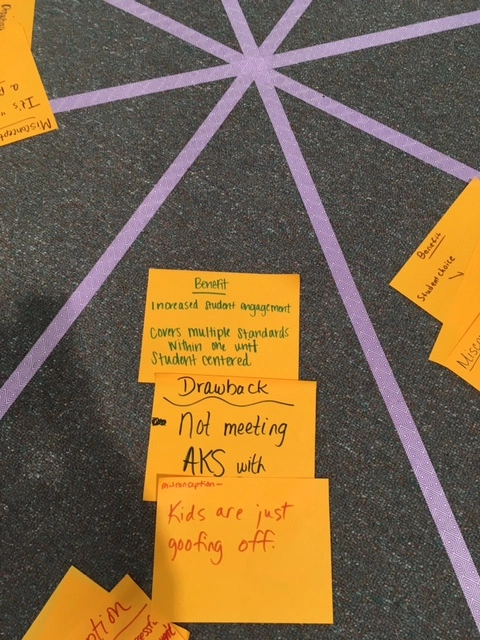 Misconcept
It's "
a
Benefit
Student choice
Benefit
Increased student engagement
Covers multiple standards
within one unit
Student centered
Drawback
Not meeting
AKS with
misconception-
Kids are just
goofing off.
ption